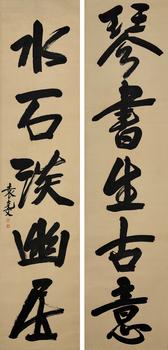 琴書生古意
水石淡幽居
袁克文